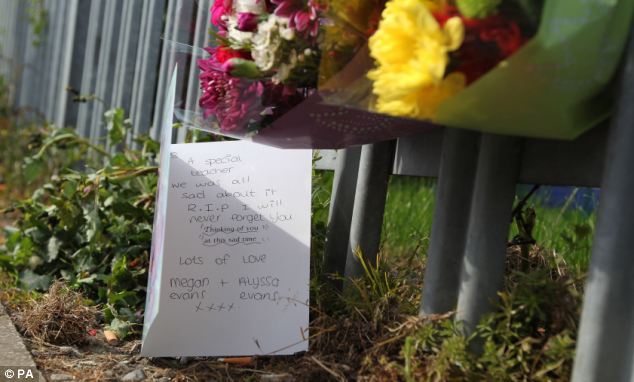 A special
teacher
we was all
sad about it
R.I.P I will
never forget you
Thinking of you
at this sad time
Lots of Love
Megan + Alyssa
evans evans
x x x x
© PA